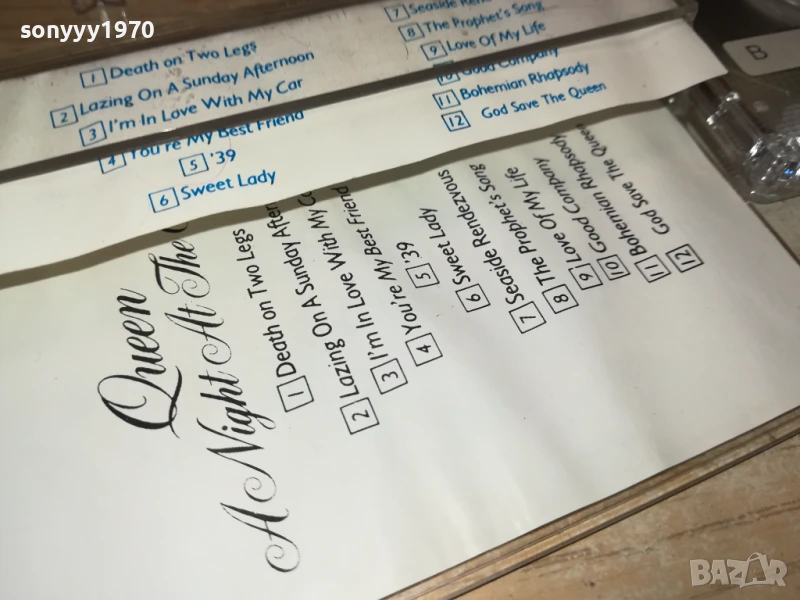 sonyyy1970
1 Death on Two Legs
2 Lazing On A Sunday Afternoon
3 I'm In Love With My Car
4 You're My Best Friend
5 '39
6 Sweet Lady
7 Seaside
8 The Prophet's Song
9 Love Of My Life
10 Good Company
11 Bohemian Rhapsody
12 God Save The Queen
B
Queen
A Night At The
1 Death on Two Legs
2 Lazing On A Sunday After
3 I'm In Love With My Ca
4 You're My Best Friend
5 '39
6 Sweet Lady
7 Seaside Rendezvous
8 The Prophet's Song
9 Love Of My Life
10 Good Company
11 Bohemian Rhapsody
12 God Save The Queen
BAZAR